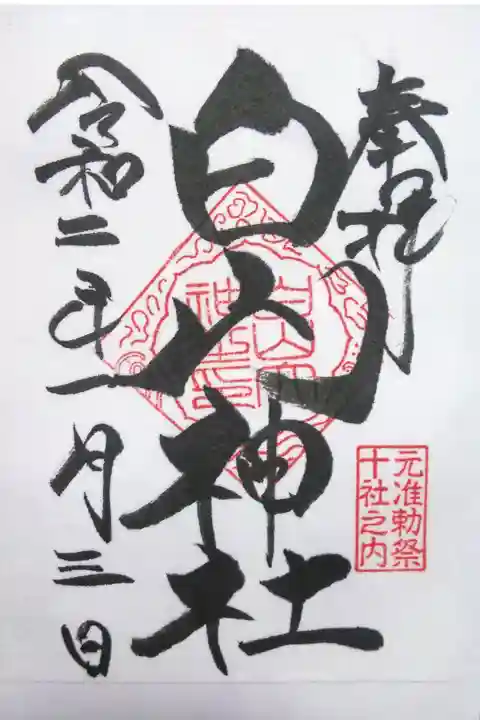 奉拝
元准勅祭
十社之内
白山神社
令和二年一月三日